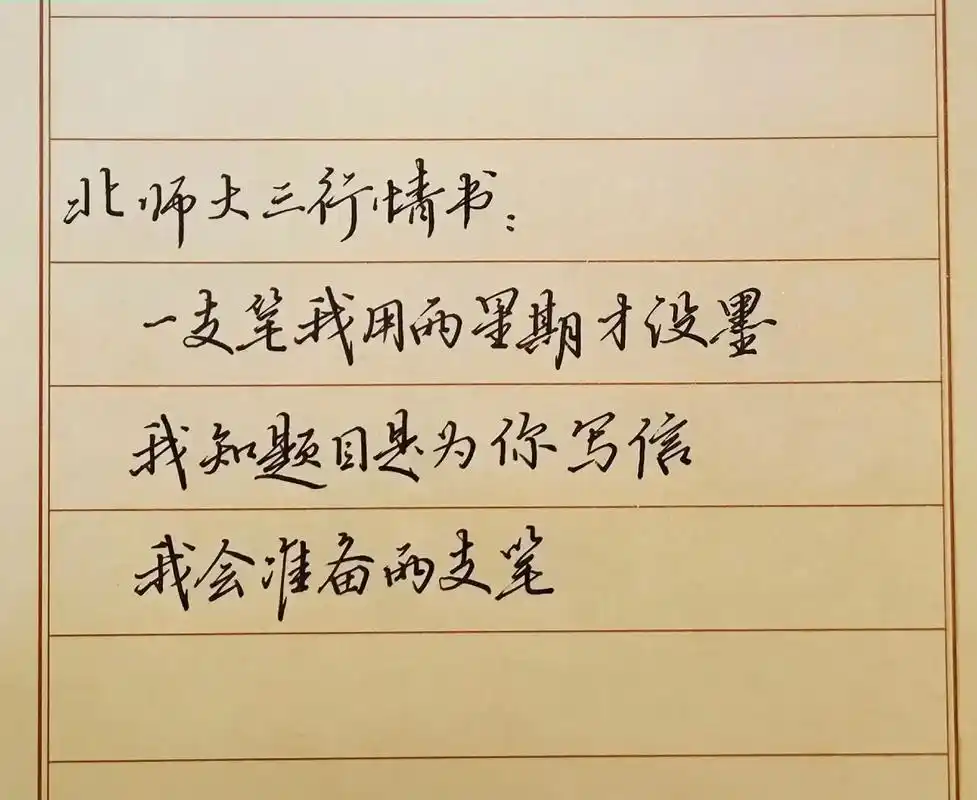 北师大三行情书：
一支笔我用两星期才没墨
我知题目是为你写信
我会准备两支笔